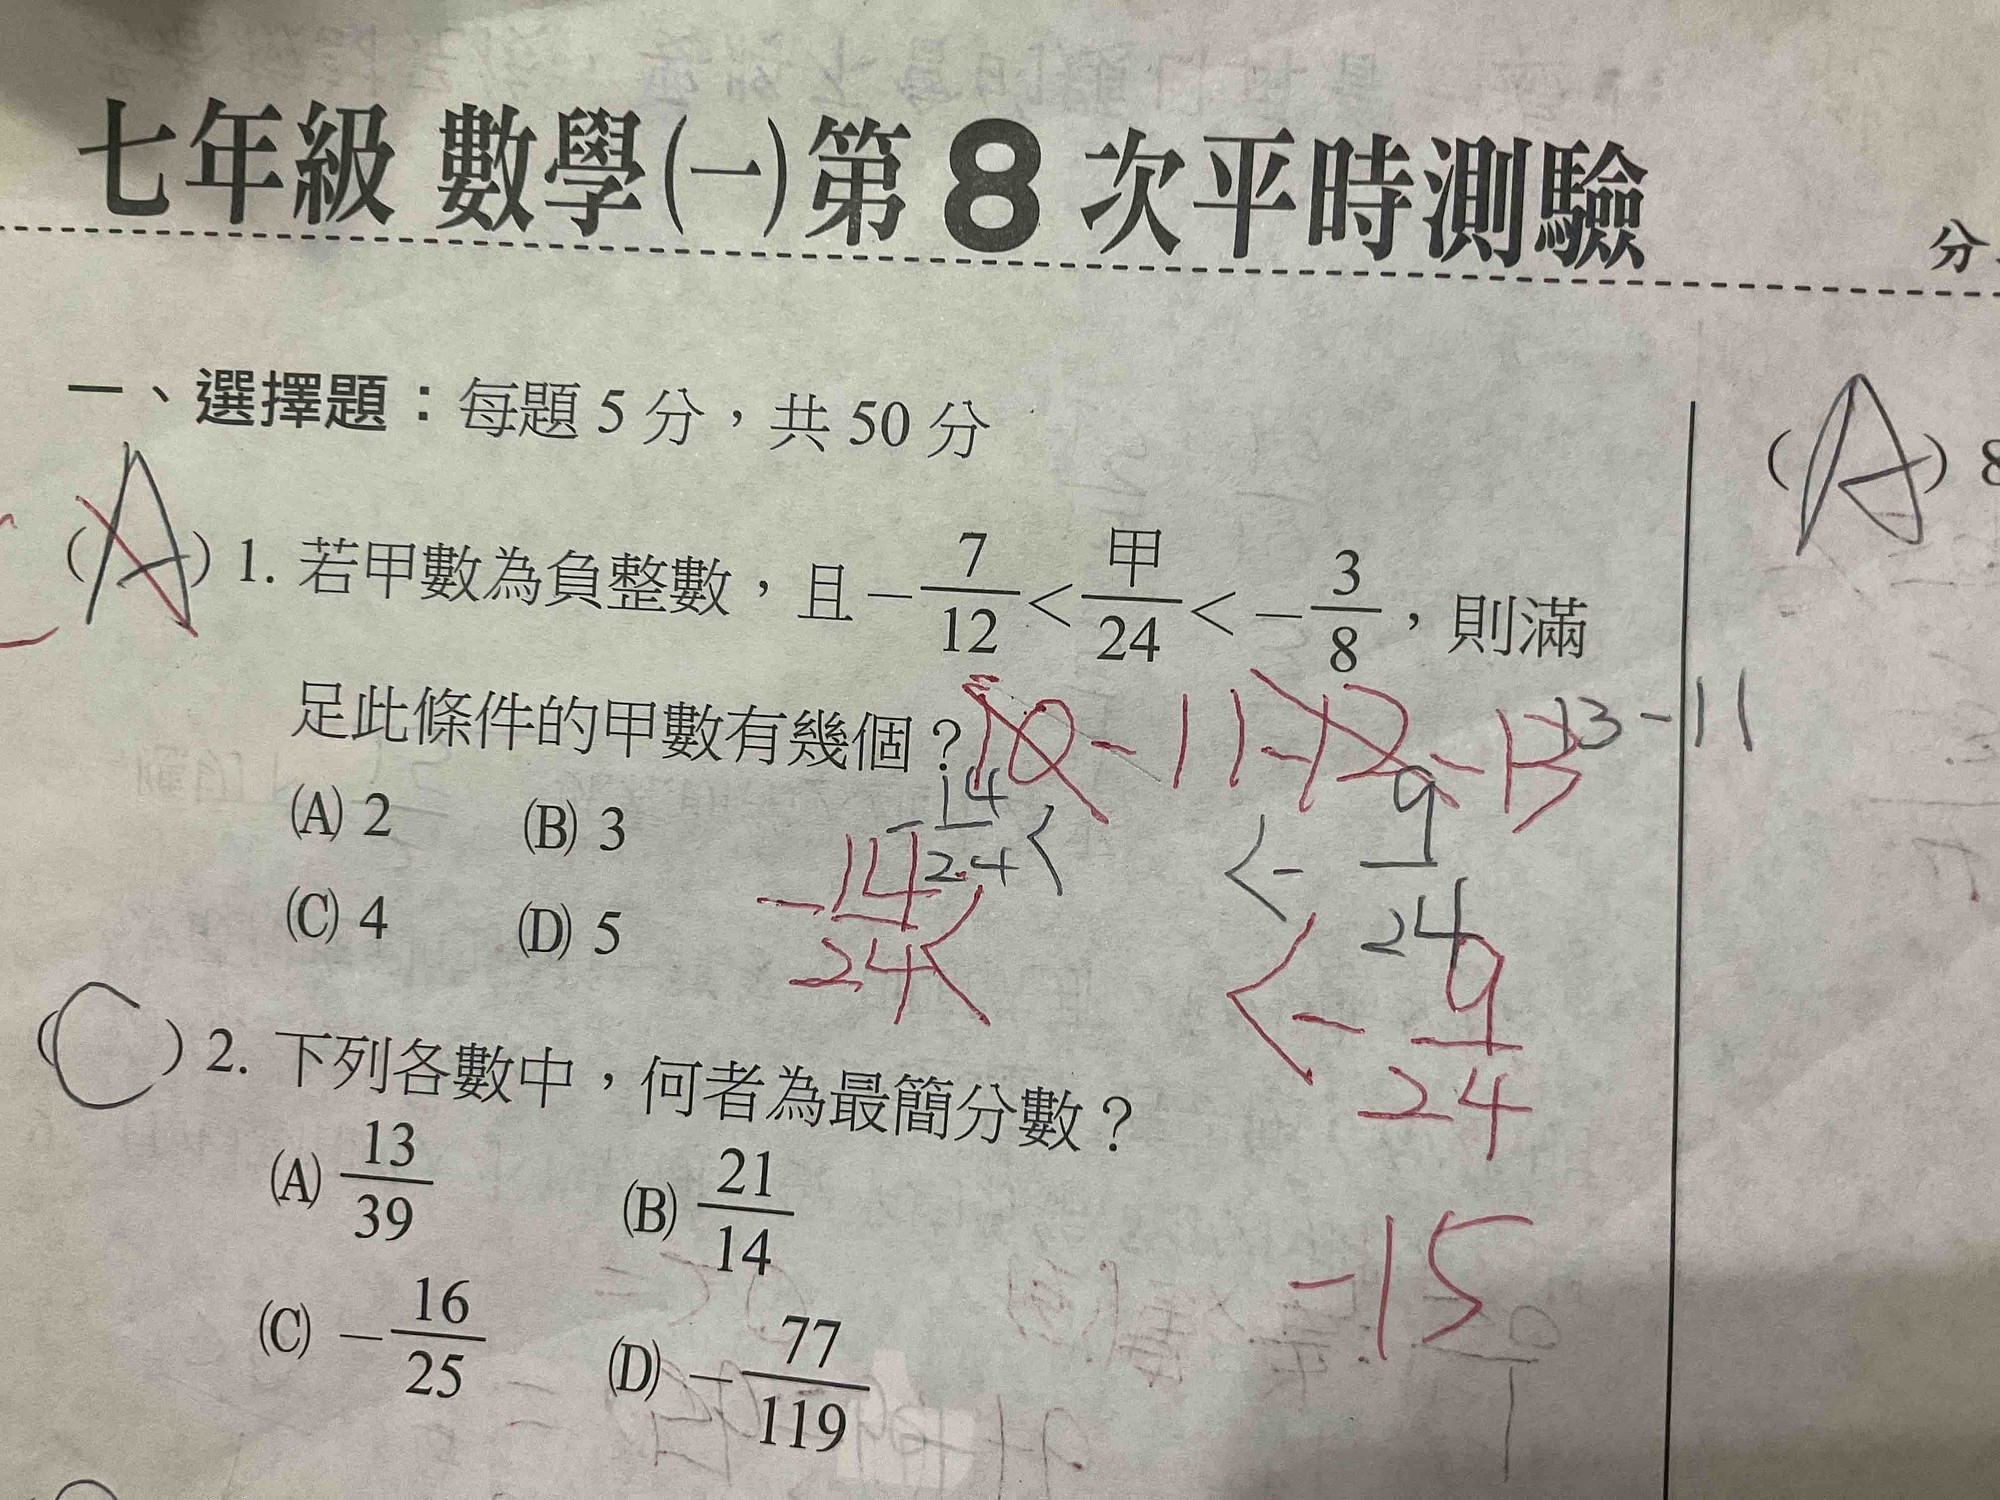 七年級 數學(一)第 8 次平時測驗
分
一、選擇題：每題 5 分，共 50 分
(A) 1. 若甲數為負整數，且 −7/12 < 甲/24 < −3/8，則滿
足此條件的甲數有幾個？
10 -11 -12 -13
13 -11
(A) 2 (B) 3
-14/24 < < -9/24
(C) 4 (D) 5
-14/24 < < -9/24
(C) 2. 下列各數中，何者為最簡分數？
(A) 13/39 (B) 21/14
-15
(C) −16/25 (D) −77/119
(A) 8